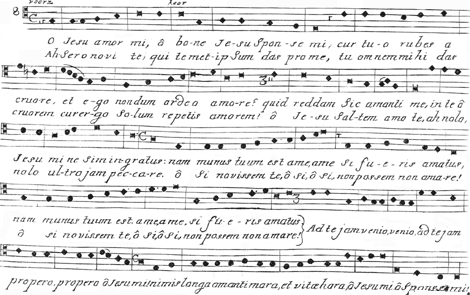 voorz. koor
8
O Jesu amor mi, ô bo-ne Je-su Spon-se mi, cur tu-o rubes a
Ah Sero novi te, qui temet-ipsum das pro me, tu omnem mihi dar
3
cruore, et e-go nondum ardeo amo-re! quid reddam Sic amanti me, in te ô
cruorem cur er-go So-lum repetis amorem! ô Je-su Sal-tem amo te, ah nolo,
Jesu mi ne Sim ingratus: nam munus tuum est ame, ame si fu-e-ris amatus,
nolo ul-tra jam pec-ca-re. ô Si novissem te, ô si, ô si, non possem non ama-re!
3
nam munus tuum est. ame, ame, si fu-e-ris amatus
ô si novissem te, ô Si, ô Si, non possem non amare! } Ad te jam venio, venio, ad te jam
propero, propero ô Jesu mi nimis longa amanti mora, et vitae hora, ô Jesu mi ô Sponse mi